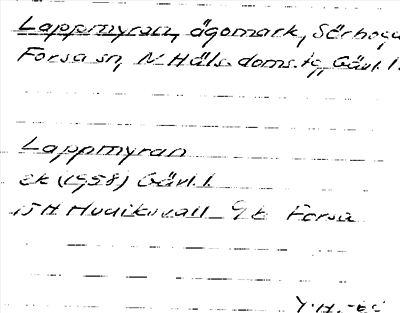 Lappmyran, ägomark, Sörhoga
Forsa sn, N Häls. doms.tg, Gävl.l.
Lappmyran
ek (1958) Gävl.l.
15H Hudiksvall 9e Forsa